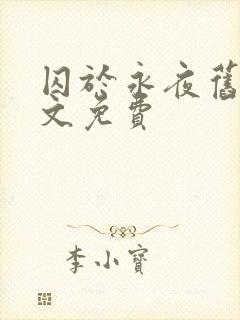 囚於永夜舊
文免費
李小寶